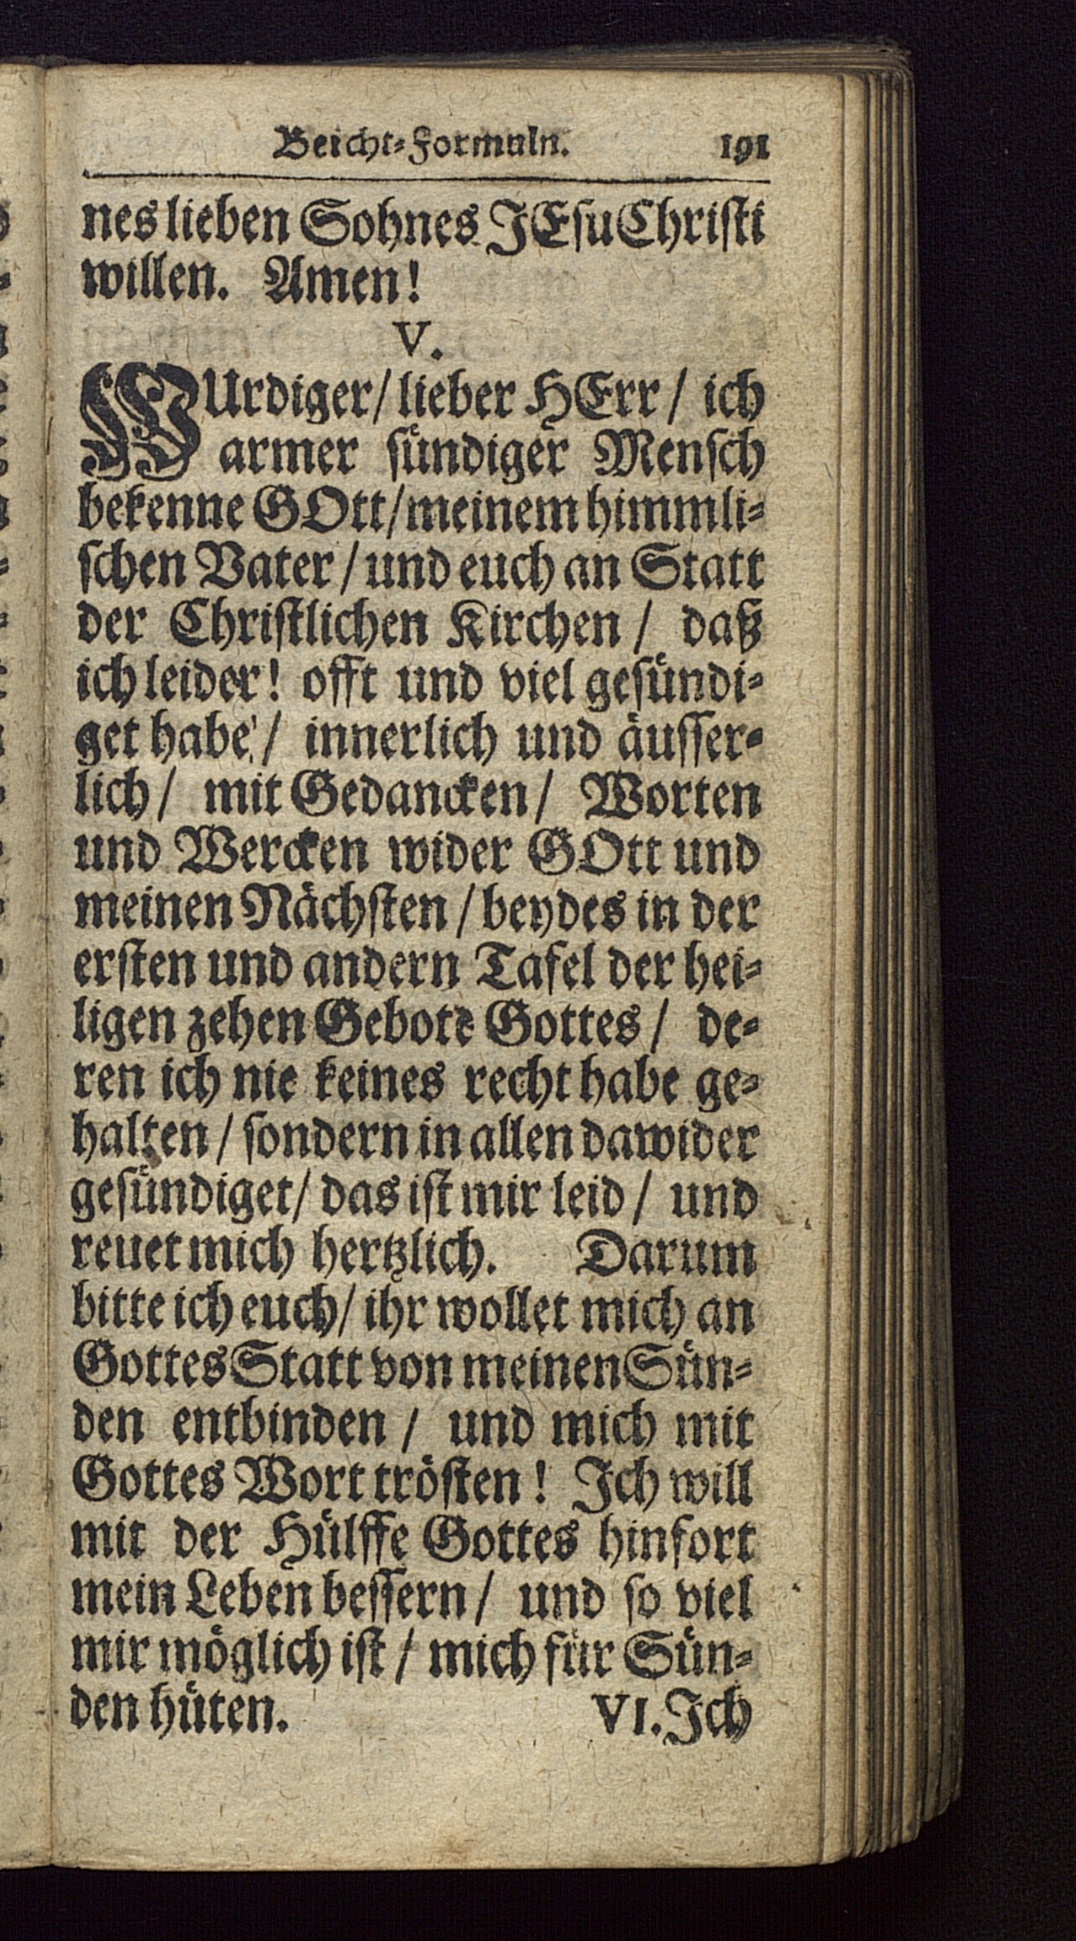 Beicht-Formuln. 191
nes lieben Sohnes JEsu Christi
willen. Amen!
V.
WUrdiger/ lieber HErr/ ich
armer sündiger Mensch
bekenne GOtt/ meinem himmli-
schen Vater/ und euch an Statt
der Christlichen Kirchen/ daß
ich leider! offt und viel gesündi-
get habe/ innerlich und äusser-
lich/ mit Gedancken/ Worten
und Wercken wider GOtt und
meinen Nächsten/ beydes in der
ersten und andern Tafel der hei-
ligen zehen Gebote Gottes/ de-
ren ich nie keines recht habe ge-
halten/ sondern in allen dawider
gesündiget/ das ist mir leid/ und
reuet mich hertzlich. Darum
bitte ich euch/ ihr wollet mich an
Gottes Statt von meinen Sün-
den entbinden/ und mich mit
Gottes Wort trösten! Ich will
mit der Hülffe Gottes hinfort
mein Leben bessern/ und so viel
mir möglich ist/ mich für Sün-
den hüten. VI. Ich